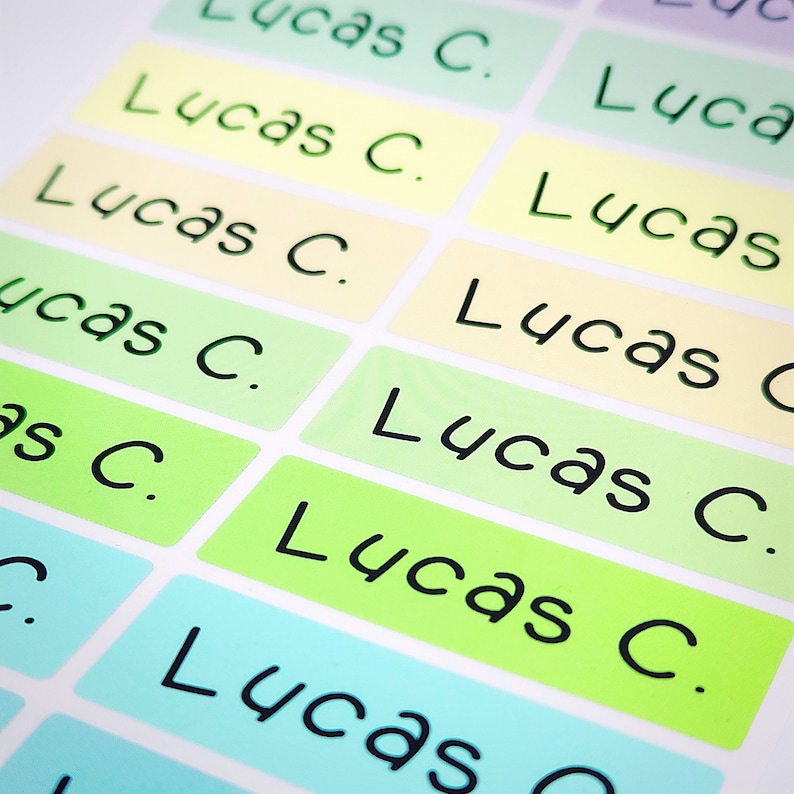 Luc
Lucas C.
Luca
Lucas C.
Lucas
Lucas C.
Lucas C
ucas C.
Lucas C.
as C.
Lucas C.
C.
Lucas C